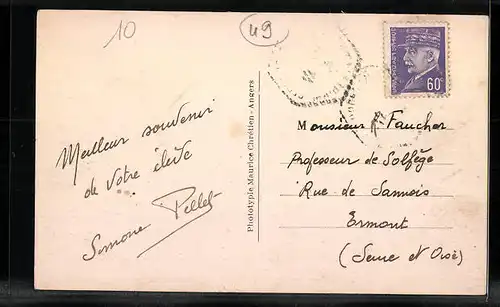 10
49
60c
Meilleur souvenir
de votre élève
Simone Pellet
Phototypie Maurice Chrétien - Angers
Monsieur Faucher
Professeur de Solfège
Rue de Sannois
Ermont
(Seine et Oise)